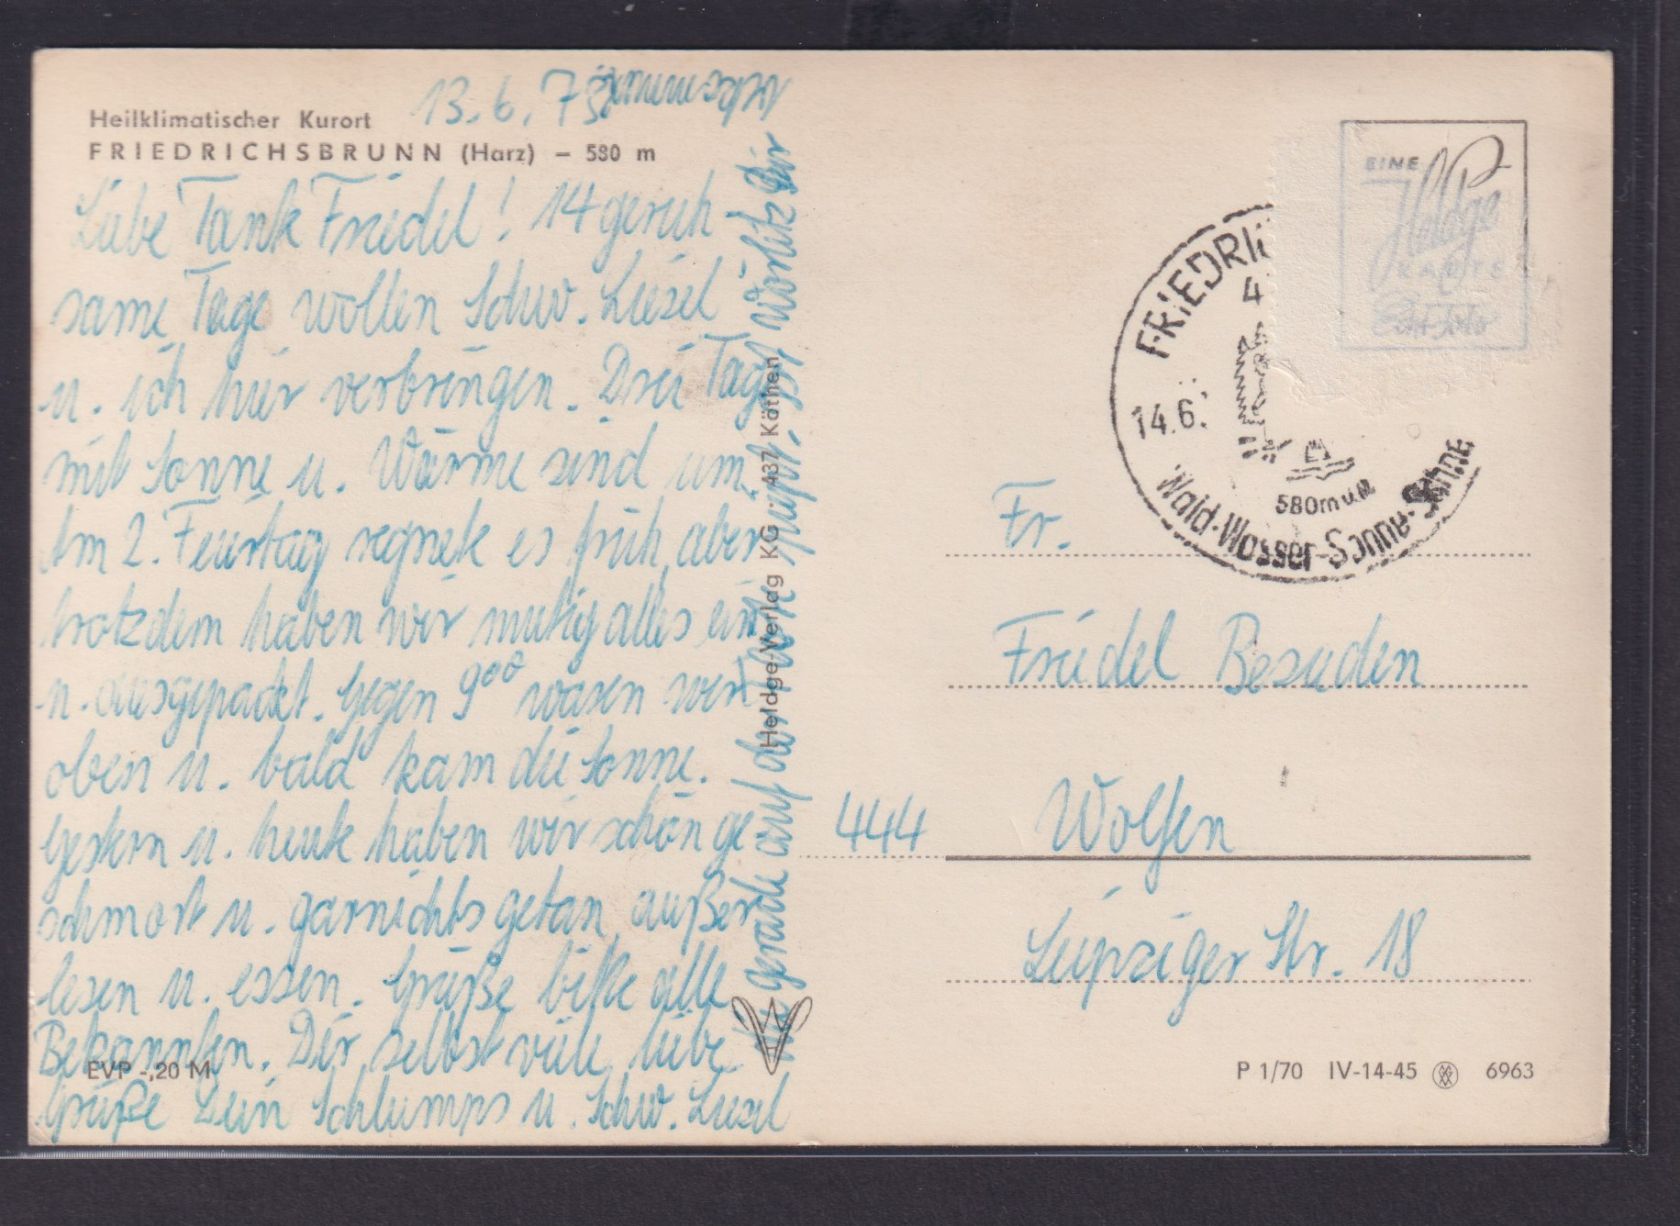 Heilklimatischer Kurort
FRIEDRICHSBRUNN (Harz) – 580 m
13. 6. 73
Liebe Tante Friedel! 14 geruh-
same Tage wollen Schw. Liesel
u. ich hier verbringen. Drei Tage
mit Sonne u. Wärme sind um.
Am 2. Feiertag regnete es früh, aber
trotzdem haben wir mutig alles ein
u. ausgepackt. Gegen 9⁰⁰ waren wir
oben u. bald kam die Sonne.
Gestern u. heute haben wir schön ge-
schmort u. garnichts getan, außer
lesen u. essen. Grüße bitte alle
Bekannten. Dir selbst viele liebe
Grüße Dein Schlumps u. Schw. Liesel
gerade auf der
Wörlitz Dir
bekommen
EVP -,20 M
Heldge-Verlag KG · 437 Köthen
EINE
Heldge
KARTE
Echt Foto
FRIEDRI
4
14.6.
580m ü.M.
Wald-Wasser-Sonne-Schnee
Fr.
Friedel Besuden
444 Wolfen
Leipziger Str. 18
P 1/70 IV-14-45 6963